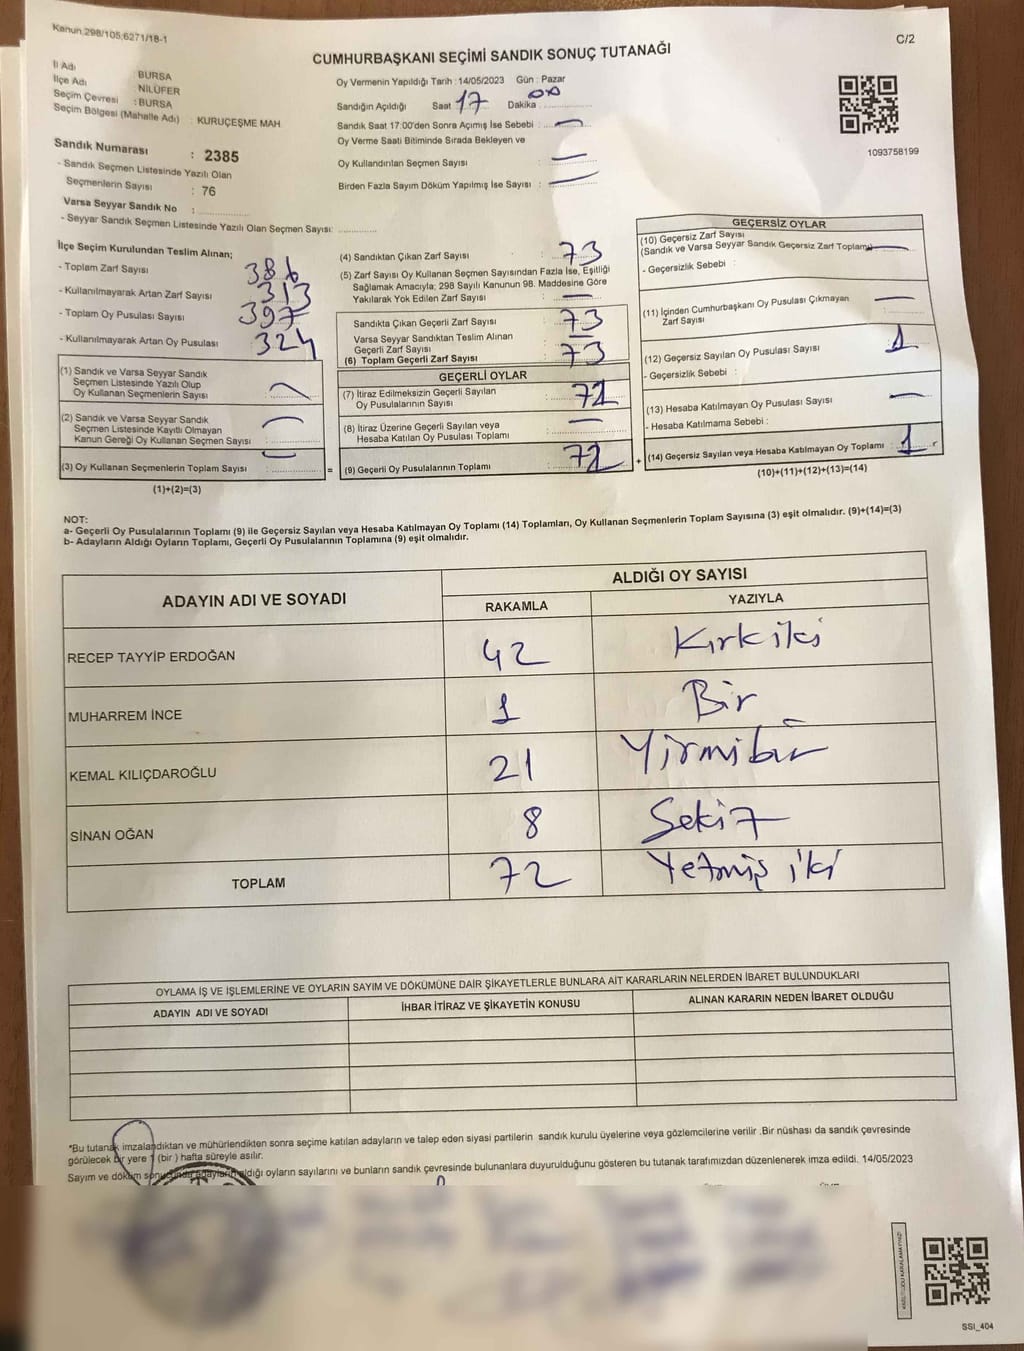 Kanun:298/105;6271/18-1
C/2
CUMHURBAŞKANI SEÇİMİ SANDIK SONUÇ TUTANAĞI
İl Adı : BURSA
İlçe Adı : NİLÜFER
Seçim Çevresi : BURSA
Seçim Bölgesi (Mahalle Adı) : KURUÇEŞME MAH
Sandık Numarası : 2385
- Sandık Seçmen Listesinde Yazılı Olan
Seçmenlerin Sayısı : 76
Varsa Seyyar Sandık No :
- Seyyar Sandık Seçmen Listesinde Yazılı Olan Seçmen Sayısı:
Oy Vermenin Yapıldığı Tarih : 14/05/2023 Gün : Pazar
Sandığın Açıldığı Saat 17 Dakika 00
Sandık Saat 17:00'den Sonra Açımış İse Sebebi : —
Oy Verme Saati Bitiminde Sırada Bekleyen ve
Oy Kullandırılan Seçmen Sayısı : —
Birden Fazla Sayım Döküm Yapılmış İse Sayısı : —
1093758199
İlçe Seçim Kurulundan Teslim Alınan;
- Toplam Zarf Sayısı 386
- Kullanılmayarak Artan Zarf Sayısı 313
- Toplam Oy Pusulası Sayısı 397
- Kullanılmayarak Artan Oy Pusulası 324
(1) Sandık ve Varsa Seyyar Sandık
Seçmen Listesinde Yazılı Olup
Oy Kullanan Seçmenlerin Sayısı : —
(2) Sandık ve Varsa Seyyar Sandık
Seçmen Listesinde Kayıtlı Olmayan
Kanun Gereği Oy Kullanan Seçmen Sayısı : —
(3) Oy Kullanan Seçmenlerin Toplam Sayısı : — =
(1)+(2)=(3)
(4) Sandıktan Çıkan Zarf Sayısı : 73
(5) Zarf Sayısı Oy Kullanan Seçmen Sayısından Fazla İse, Eşitliği
Sağlamak Amacıyla; 298 Sayılı Kanunun 98. Maddesine Göre
Yakılarak Yok Edilen Zarf Sayısı : —
Sandıkta Çıkan Geçerli Zarf Sayısı : 73
Varsa Seyyar Sandıktan Teslim Alınan
Geçerli Zarf Sayısı : —
(6) Toplam Geçerli Zarf Sayısı : 73
GEÇERLİ OYLAR
(7) İtiraz Edilmeksizin Geçerli Sayılan
Oy Pusulalarının Sayısı : 72
(8) İtiraz Üzerine Geçerli Sayılan veya
Hesaba Katılan Oy Pusulası Toplamı : —
(9) Geçerli Oy Pusulalarının Toplamı : 72 +
GEÇERSİZ OYLAR
(10) Geçersiz Zarf Sayısı
(Sandık ve Varsa Seyyar Sandık Geçersiz Zarf Toplamı) —
- Geçersizlik Sebebi :
(11) İçinden Cumhurbaşkanı Oy Pusulası Çıkmayan —
Zarf Sayısı
(12) Geçersiz Sayılan Oy Pusulası Sayısı : 1
- Geçersizlik Sebebi :
(13) Hesaba Katılmayan Oy Pusulası Sayısı : —
- Hesaba Katılmama Sebebi :
(14) Geçersiz Sayılan veya Hesaba Katılmayan Oy Toplamı : 1
(10)+(11)+(12)+(13)=(14)
NOT:
a- Geçerli Oy Pusulalarının Toplamı (9) ile Geçersiz Sayılan veya Hesaba Katılmayan Oy Toplamı (14) Toplamları, Oy Kullanan Seçmenlerin Toplam Sayısına (3) eşit olmalıdır. (9)+(14)=(3)
b- Adayların Aldığı Oyların Toplamı, Geçerli Oy Pusulalarının Toplamına (9) eşit olmalıdır.
ADAYIN ADI VE SOYADI
ALDIĞI OY SAYISI
RAKAMLA YAZIYLA
RECEP TAYYİP ERDOĞAN 42 Kırk iki
MUHARREM İNCE 1 Bir
KEMAL KILIÇDAROĞLU 21 Yirmibir
SİNAN OĞAN 8 Sekiz
TOPLAM 72 Yetmiş iki
OYLAMA İŞ VE İŞLEMLERİNE VE OYLARIN SAYIM VE DÖKÜMÜNE DAİR ŞİKAYETLERLE BUNLARA AİT KARARLARIN NELERDEN İBARET BULUNDUKLARI
ADAYIN ADI VE SOYADI İHBAR İTİRAZ VE ŞİKAYETİN KONUSU ALINAN KARARIN NEDEN İBARET OLDUĞU
*Bu tutanak imzalandıktan ve mühürlendikten sonra seçime katılan adayların ve talep eden siyasi partilerin sandık kurulu üyelerine veya gözlemcilerine verilir .Bir nüshası da sandık çevresinde
görülecek bir yere 1 (bir ) hafta süreyle asılır.
Sayım ve döküm sonucunda adayların aldığı oyların sayılarını ve bunların sandık çevresinde bulunanlara duyurulduğunu gösteren bu tutanak tarafımızdan düzenlenerek imza edildi. 14/05/2023
SSI_404